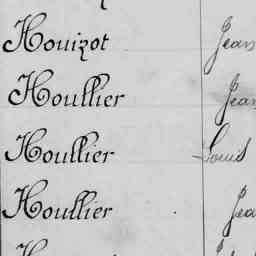 Houizot Jean
Houllier Jean
Houllier Louis
Houllier Jea